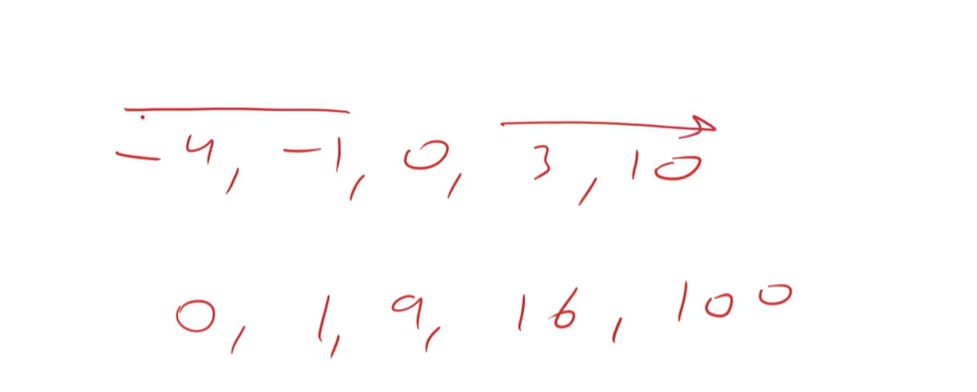 -4, -1, 0, 3, 10
0, 1, 9, 16, 100